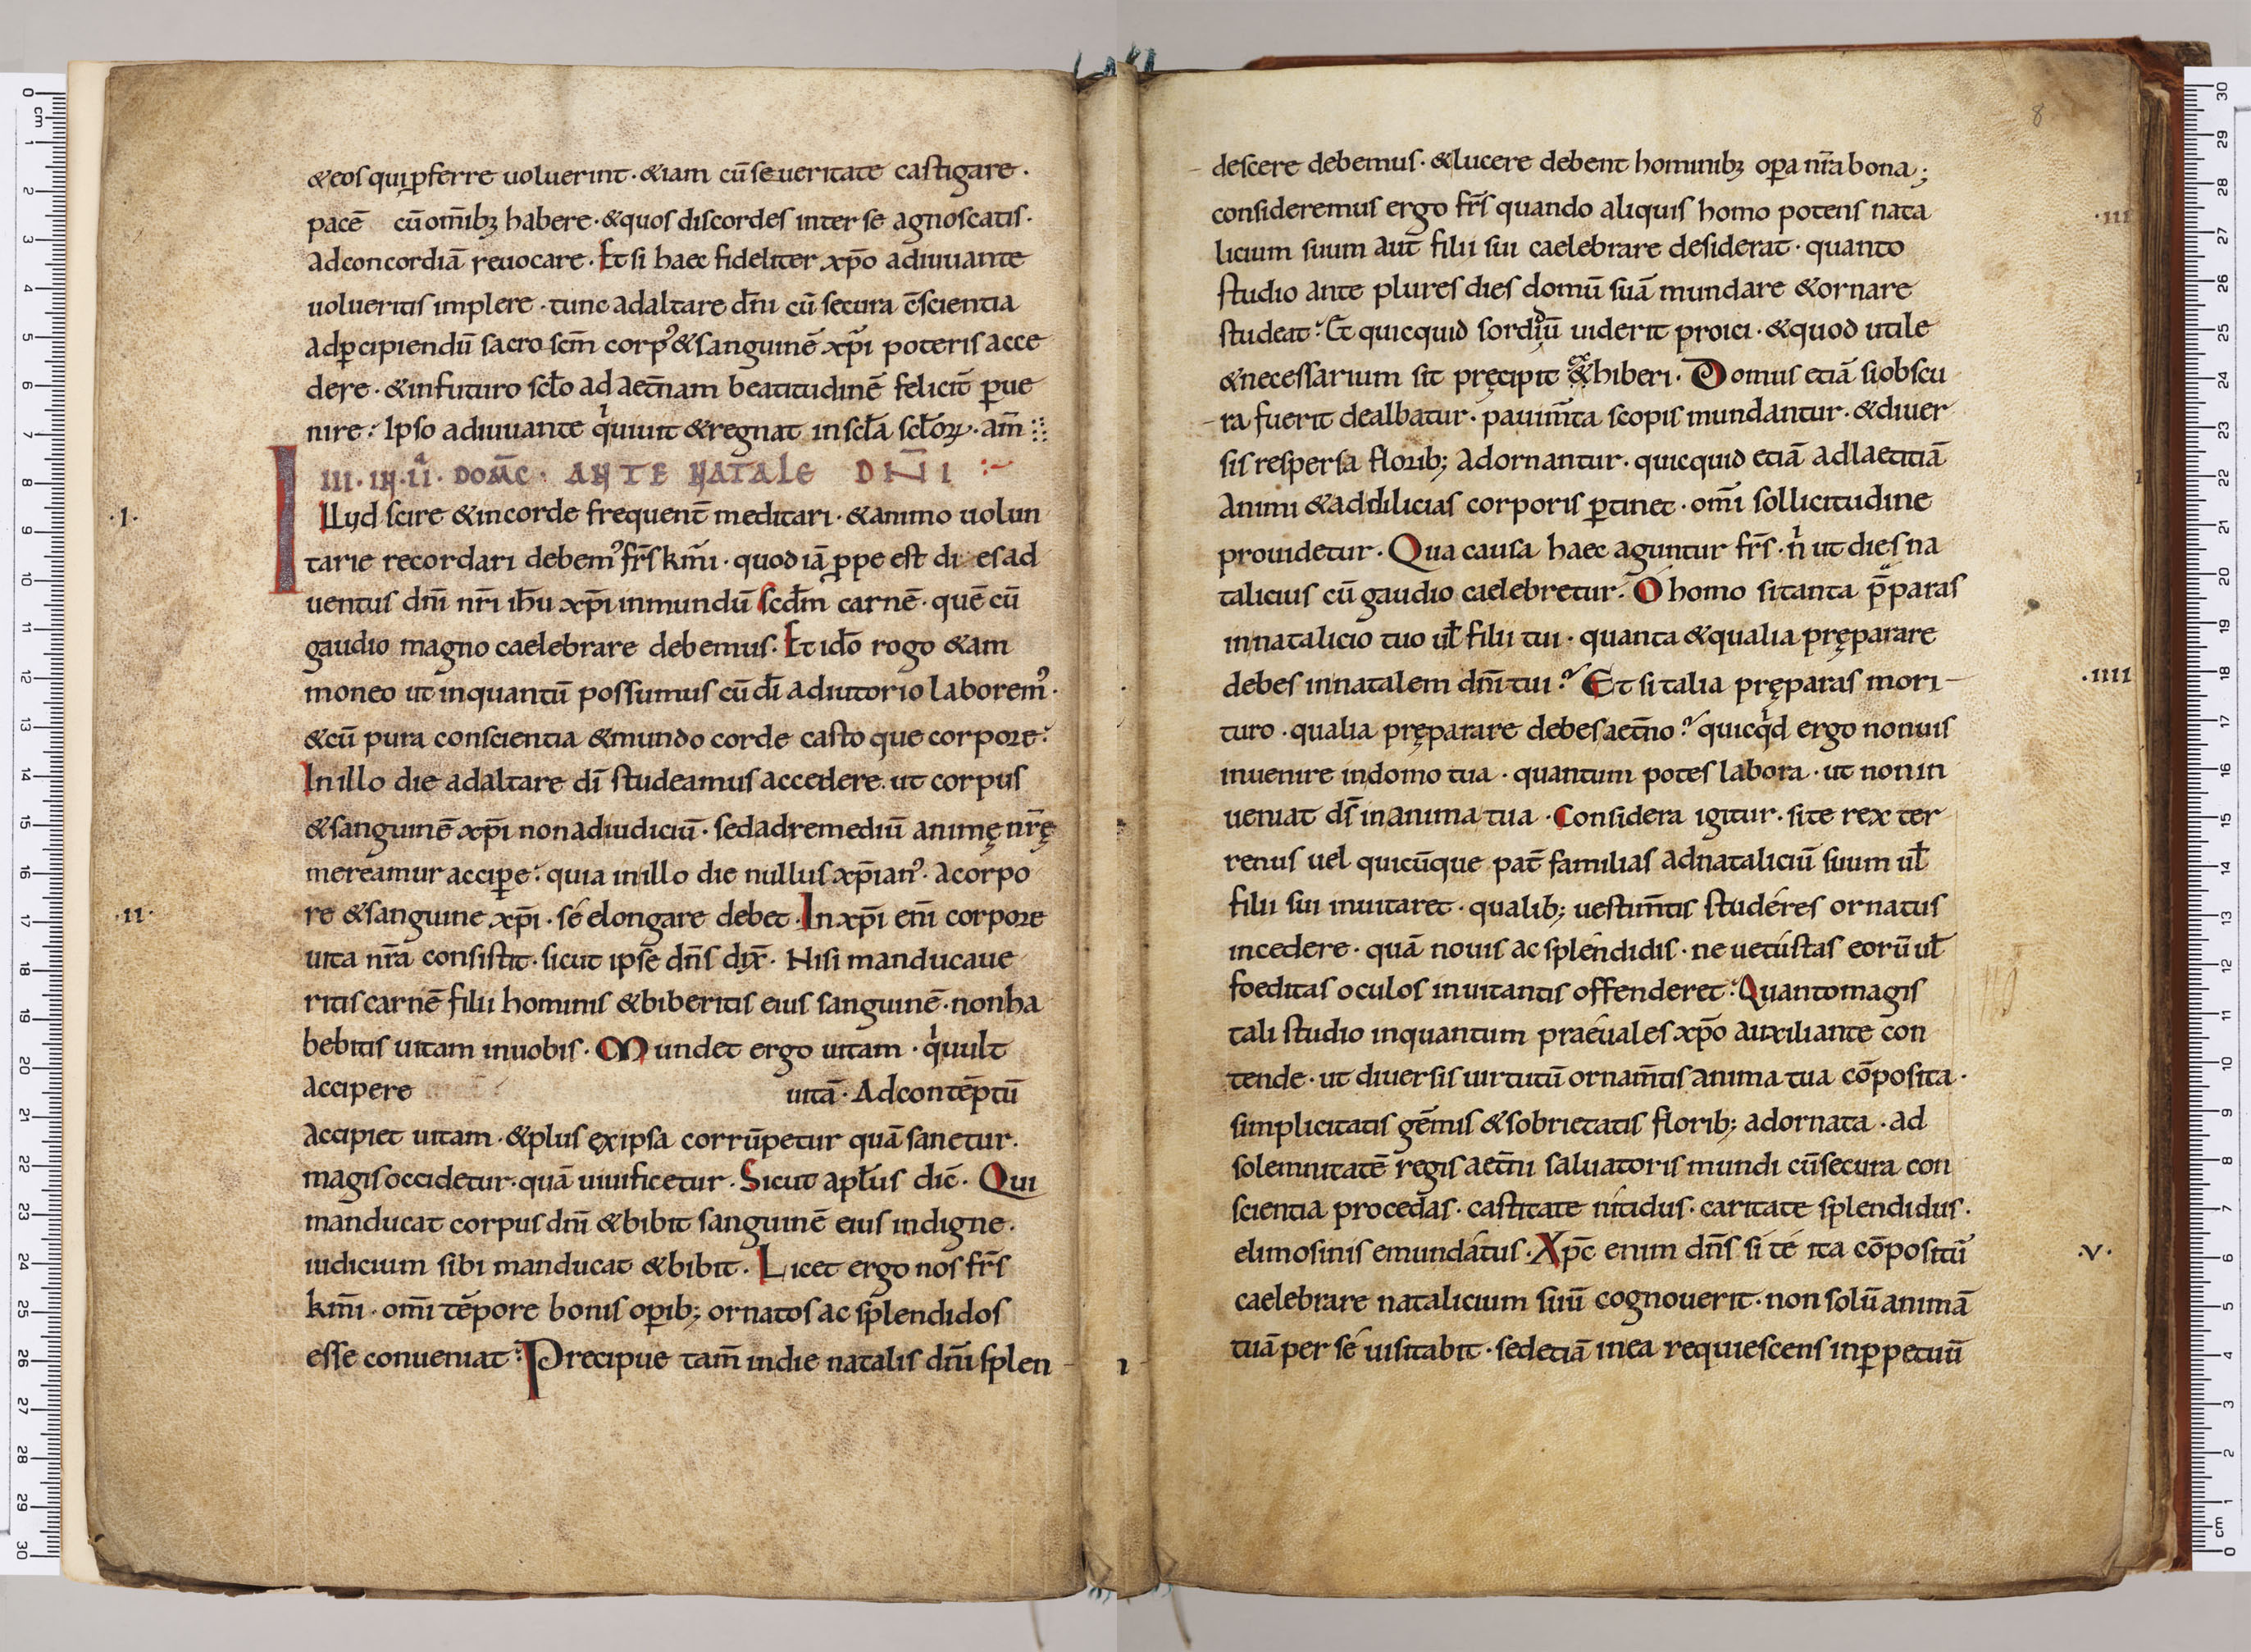 &eos qui ꝑferre uoluerint · &iam cū seueritate castigare ·
pacē cū om̄ibꝫ habere · &quos discordes inter se agnoscatis ·
ad concordiā reuocare · Et si haec fideliter xp̄o adiuuante
uolueritis implere · tunc ad altare dn̄i cū secura c̄scientia
ad ꝑcipiendū sacro scm̄ corpꝰ &sanguinē xp̄i poteris acce
dere · &in futuro scl̄o ad aet̄nam beatitudinē felicit̄ ꝑue
nire · Ipso adiuuante qͥ uiuit &regnat in scl̄a scl̄oꝝ · am̄
III · IN · II · DOM̄C · ANTE NATALE DN̄I
·I·
Illud scire &in corde frequent̄ meditari · &animo uolun
tarie recordari debemꝰ fr̄s km̄i · quod iā ꝓpe est di es ad
uentus dn̄i nr̄i ih̄u xp̄i in mundū scdm̄ carnē · quē cū
gaudio magno caelebrare debemus · Et ido̅ rogo &am
moneo ut in quantū possumus cū dī adiutorio laboremꝰ ·
&cū pura conscientia &mundo corde casto que corpore ·
In illo die ad altare dī studeamus accedere · ut corpus
&sanguinē xp̄i non ad iudiciū · sed ad remediū animę nr̄ę
mereamur acciꝑe · quia in illo die nullus xp̄ianꝰ · a corpo
·II·
re &sanguine xp̄i · sé elongare debet · In xp̄i eni̅ corpore
uita nr̄a consistit · sicut ipse dn̄s dix̄ · Nisi manducaue
ritis carnē filii hominis &biberitis eius sanguinē · non ha
bebitis uitam in uobis · Mundet ergo uitam · qͥ uult
accipere uitā · Ad contēptū
accipiet uitam · &plus ex ipsa corrūpetur quā sanetur ·
magis occidetur · quā uiuificetur · Sicut apl̄us dic̄ · Qui
manducat corpus dn̄i &bibit sanguinē eius indigne ·
iudicium sibi manducat &bibit · Licet ergo nos fr̄s
km̄i · om̄i tēpore bonis oꝑib; ornatos ac splendidos
esse conueniat · Precipue tam̄ in die natalis dn̄i splen
8
descere debemus · &lucere debent hominibꝫ oꝑa nr̄a bona;
·III
consideremus ergo fr̄s quando aliquis homo potens nata
licium suum aut filii sui caelebrare desiderat · quanto
studio ante plures dies domū suā mundare &ornare
studeat · Et quicquid sordiū uiderit proici · &quod utile
&necessarium sit pręcipit exhiberi · Domus etiā si obscu
ra fuerit dealbatur · pauim̄ta scopis mundantur · &diuer
sis respersa florib; adornantur · quicquid etiā ad laetitiā
animi &ad dilicias corporis ꝑtinet · om̄i sollicitudine
prouidetur · Qua causa haec aguntur fr̄s · nͥ ut dies na
talicius cū gaudio caelebretur · O homo si tanta p̄paras
in natalicio tuo ul̄ filii tui · quanta &qualia pręparare
·IIII
debes in natalem dn̄i tui · Et si talia pręparas mori
turo · qualia pręparare debes aet̄no · quicqͥd ergo non uis
inuenire in domo tua · quantum potes labora · ut non in
ueniat ds̄ in anima tua · Considera igitur · si te rex ter
renus uel quicūque pat̄ familias ad nataliciū suum ul̄
filii sui inuitaret · qualib; uestim̄tis studéres ornatus
incedere · quā nouis ac spléndidis · ne uetústas eorū ul̄
foeditas oculos inuitantis offenderet · Quanto magis
tali studio in quantum praeúales xp̄o auxiliante con
tende · ut diuersis uirtutū ornam̄tis anima tua cōposita ·
simplicitatis gēmis &sobrietatis florib; adornata · ad
solemnitatē regis aet̄ni saluatoris mundi cū secura con
scientia procedas · castitate nítidus · caritate splendidus ·
·V·
elimosinis emundátus · Xp̄c enim dn̄s si té ita cōpositū
caelebrare natalicium suū cognouerit · non solū animā
tuā per sé uisitabit · sed etiā in ea requiescens in ꝑpetuū